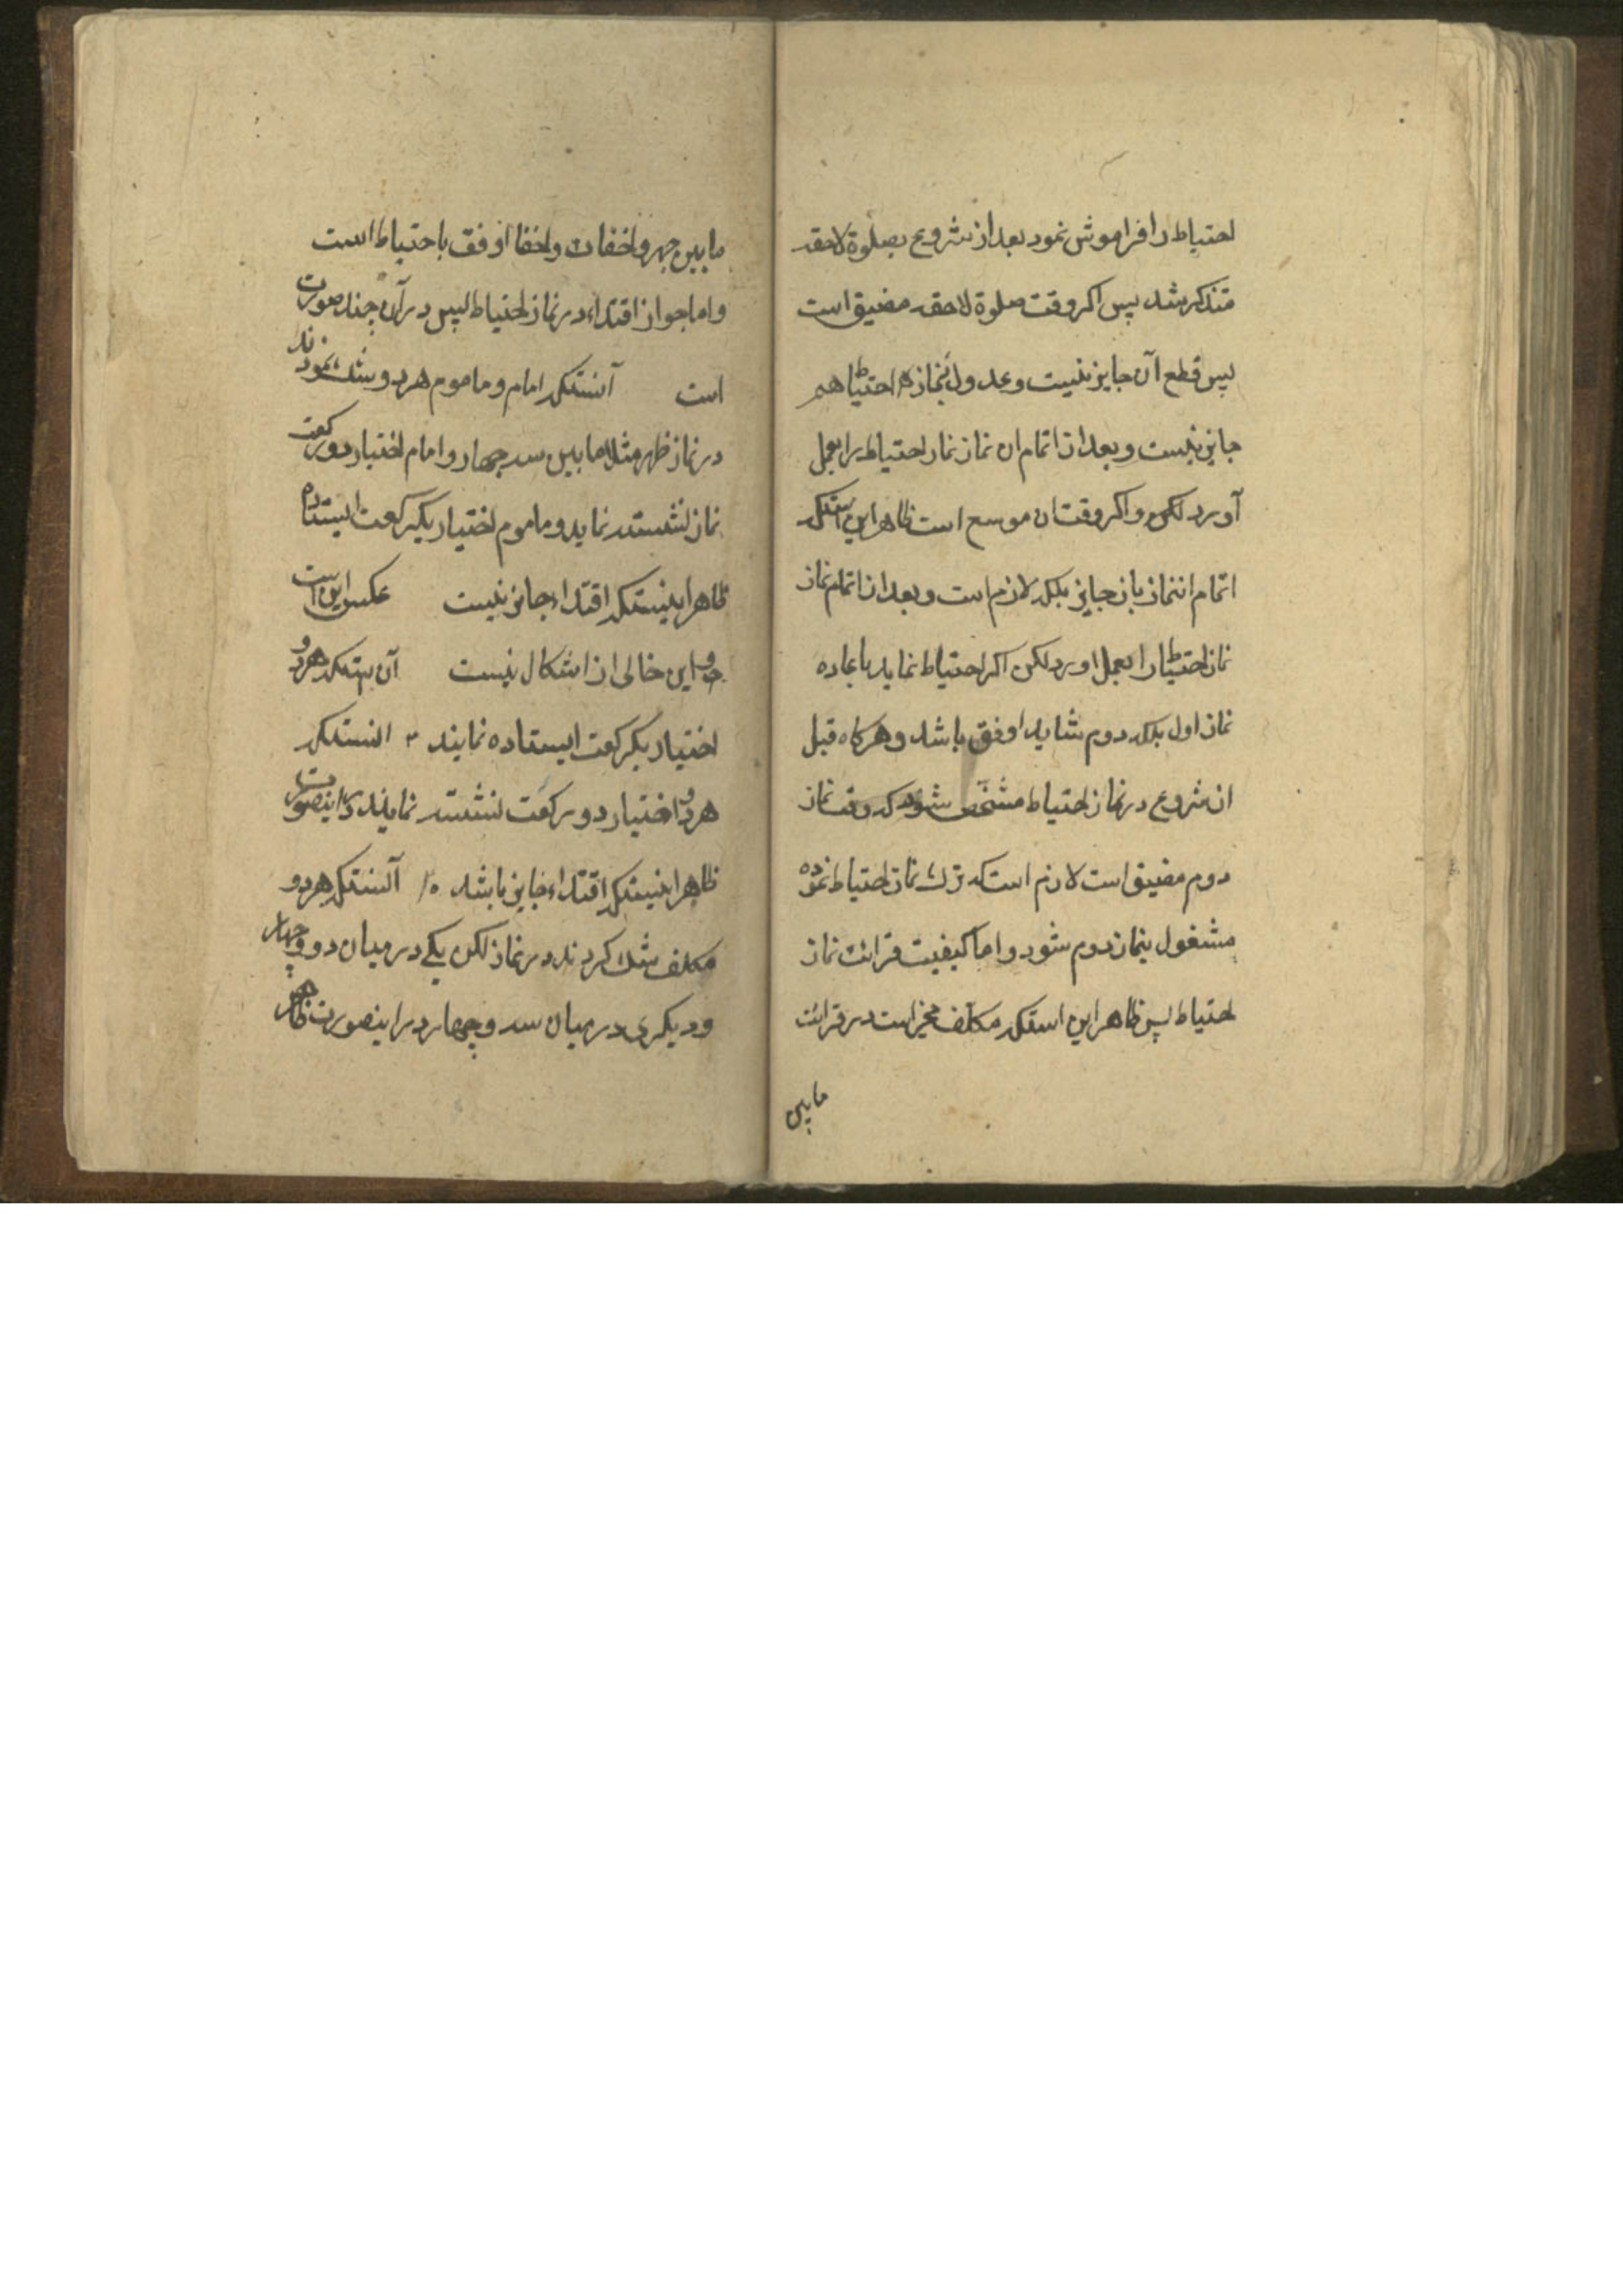 احتیاط را فراموش نمود بعد از شروع بصلوة لاحقه
متذکر شد پس اکر وقت صلوة لاحقه مضیق است
پس قطع آن جایز نیست و عدول بنماز احتیاط هم
جایز نیست و بعد از اتمام ان نماز نماز احتیاط را بعمل
آورد لکن و اکر وقت ان موسع است ظاهر این استکه
اتمام اننماز بان جایز بلکه لازم است و بعد از اتمام نماز
نماز احتیاط را بعمل اورد لکن اکر احتیاط نماید باعاده
نماز اول بلکه دوم شاید اوفق باشد و هرکاه قبل
از شروع در نماز احتیاط مشخص شود که وقت نماز
دوم مضیق است لازم است که ترک نماز احتیاط نموده
مشغول بنماز دوم شود و اما کیفیت قرائت نماز
احتیاط پس ظاهر این استکه مکلف مخیر است در قرائت
مابین
مابین جهر و اخفات و اخفا اوفق باحتیاط است
و اما جواز اقتداء در نماز احتیاط پس در آن چند صورت
است آنستکه امام و ماموم هر دو شک نمودند
در نماز ظهر مثلا مابین سه چهار و امام اختیار دو رکعت
نماز نشسته نماید و ماموم اختیار یکرکعت ایستاده
ظاهر اینستکه اقتداء جایز نیست عکس این است
و این خالی از اشکال نیست آن ستکه هردو
اختیار یکرکعت ایستاده نمایند ۳ انستکه
هردو اختیار دو رکعت نشسته نمایند در اینصورت
ظاهر اینستکه اقتداء جایز باشد آنستکه هردو
مکلف شک کردند در نماز لکن یکے در میان دو و چهار
و دیکری در میان سه و چهار در اینصورت ظاهر